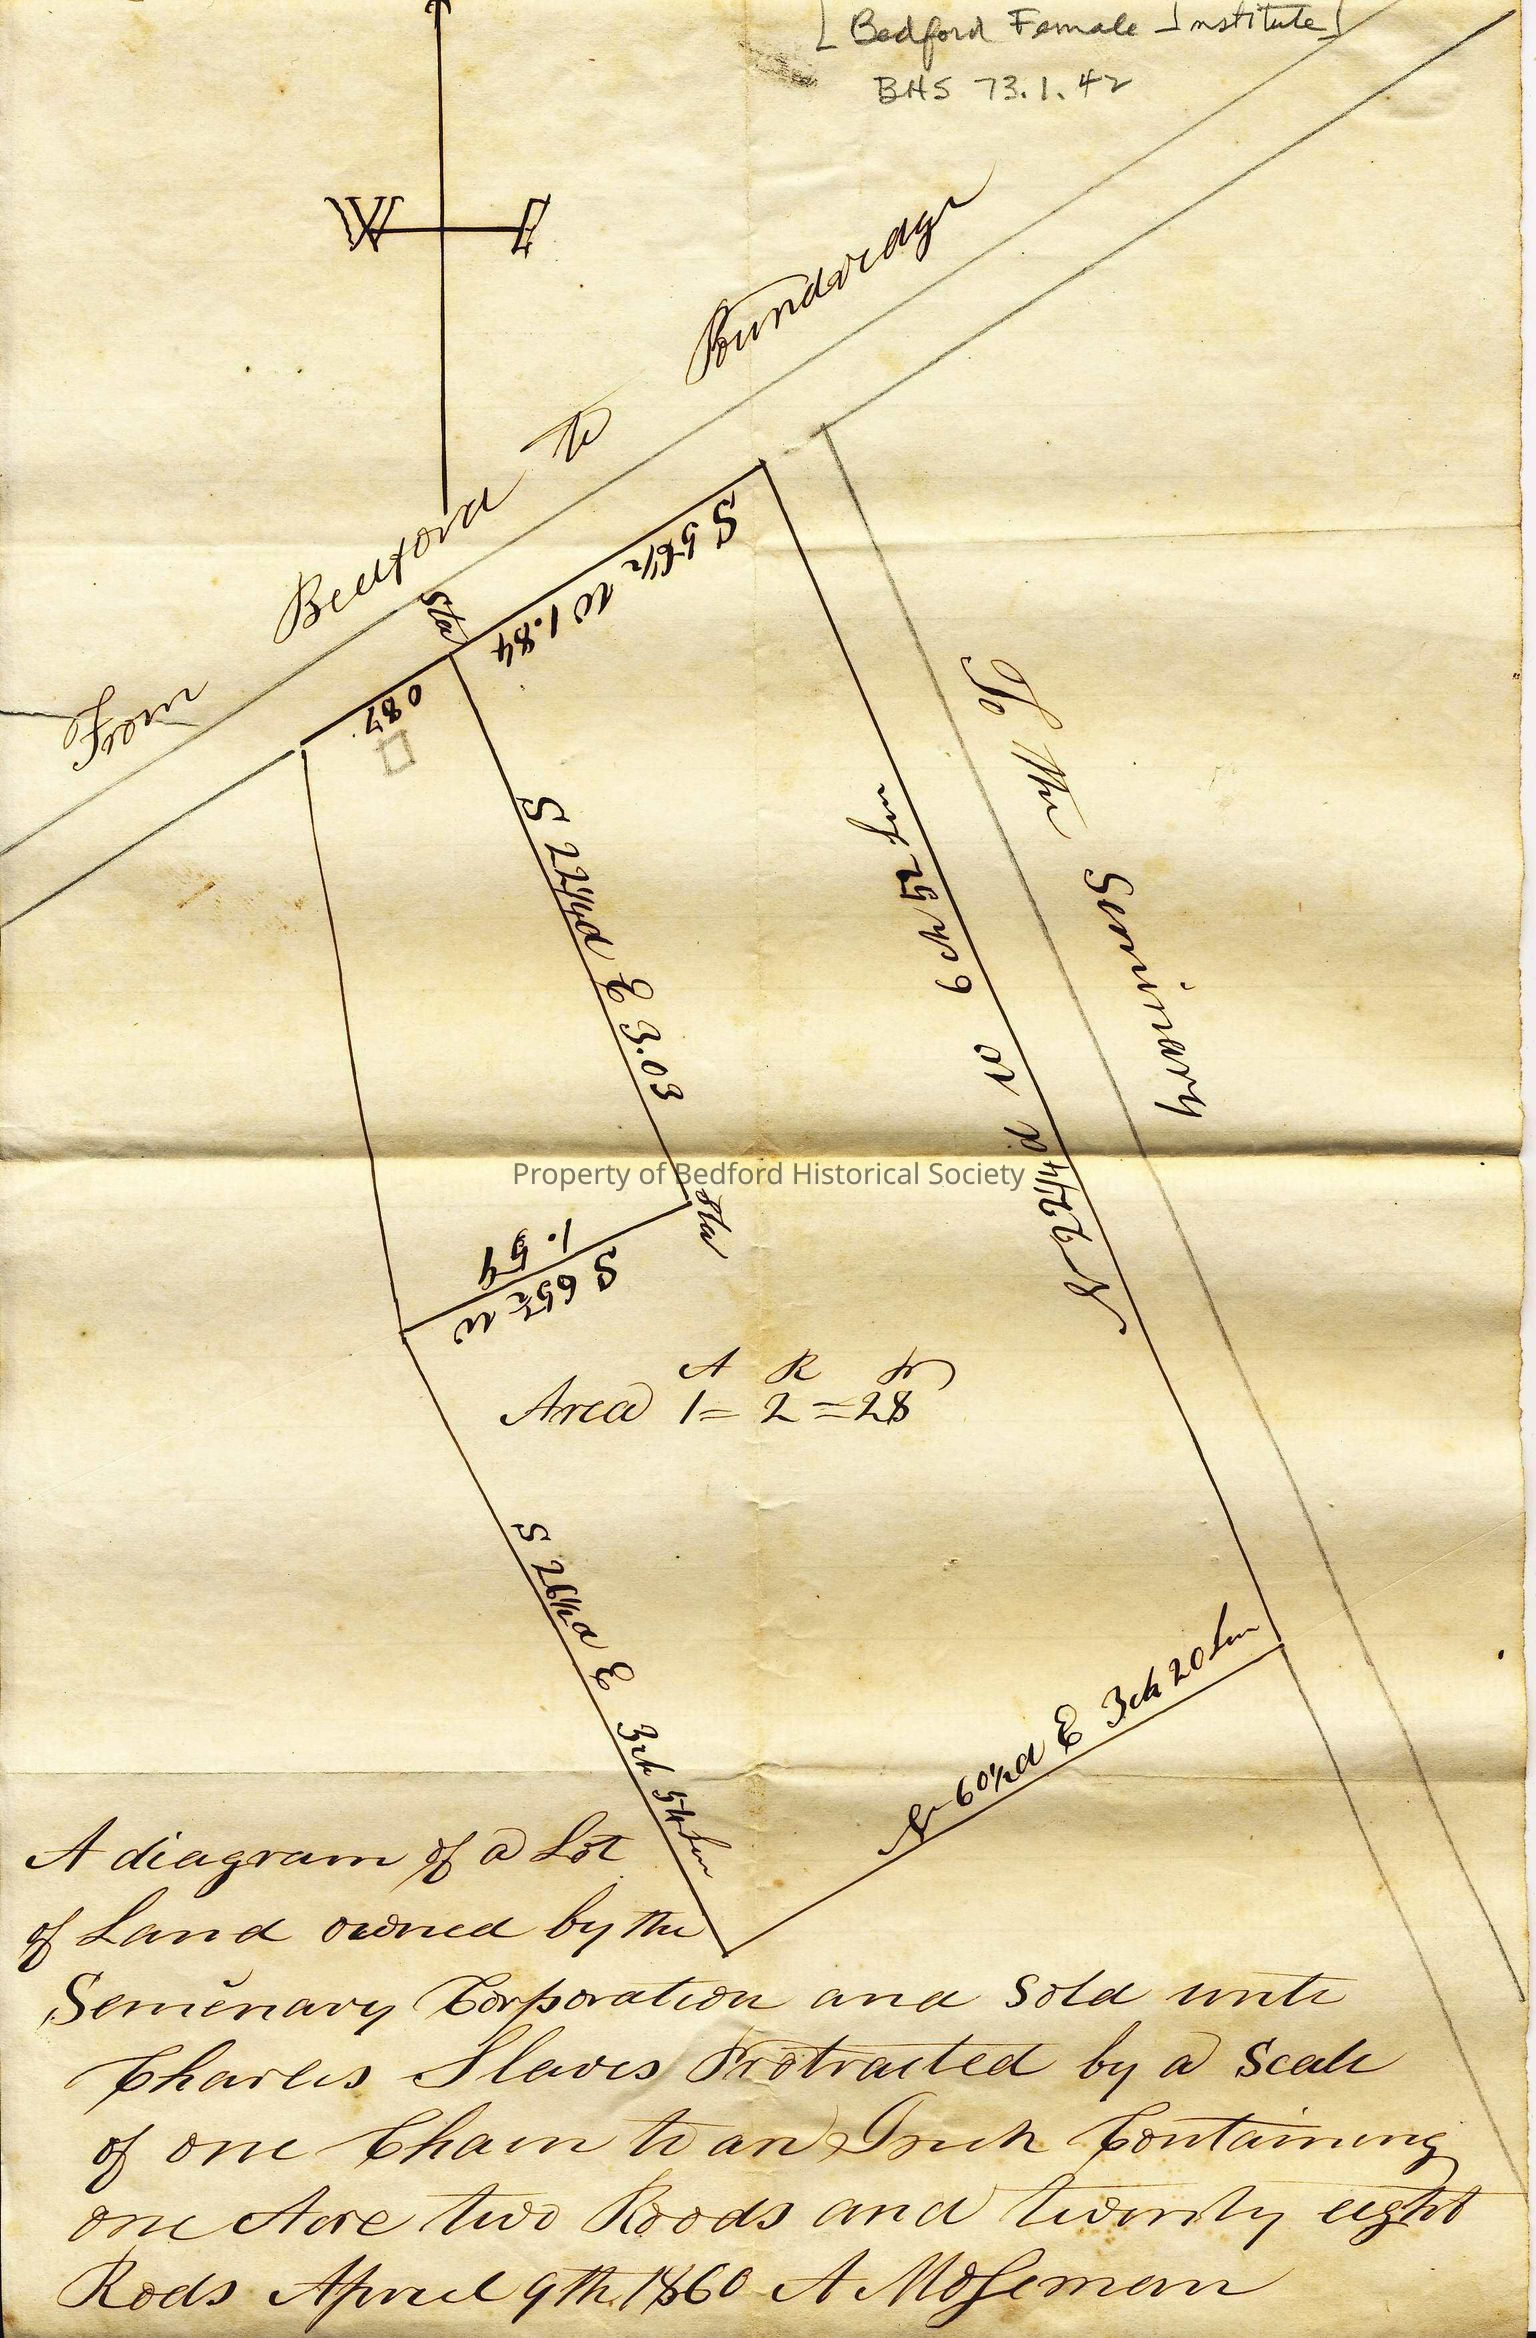 [Bedford Female Institute]
BHS 73.1.42
W
From Bedford to Poundridge
Sta
S 56 1/2 W 1.84
0 87
S 22 1/4 d E 3.03
To the Seminary
N 22 1/4 d W 6 ch 52 Lin
Property of Bedford Historical Society
Sta
1.54
S 65 1/2 W
A R
Area 1 = 2 = 28
S 26 1/2 d E 3ch 54 Lin
N 60 1/2 d E 3ch 20 Lin
A diagram of a Lot
of Land owned by the
Semenary Corporation and Sold unto
Charles Slaves Protracted by a Scale
of one Chain to an Inch Containing
one Acre two Roods and twenty eight
Rods April 9th 1860 A Moseman